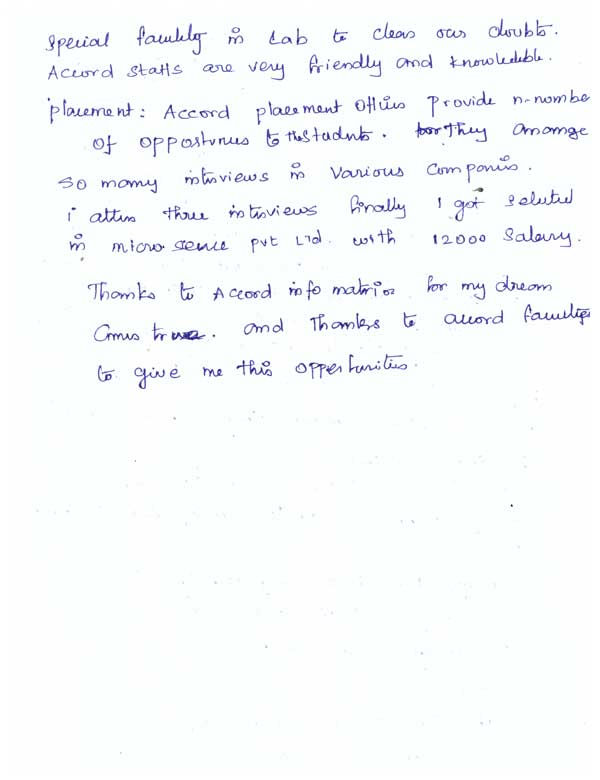 special faculty in Lab to clear our doubts.
Accord staffs are very friendly and knowledeble.
placement: Accord placement offices provide n-numbe
of opportunies to the students. They arrange
so many interviews in various companies.
i atten three interviews finally I got selected
in micro sence pvt Ltd. with 12000 salary.
Thanks to Accord info matrix for my dream
Comes true. and Thanks to accord faculties
to give me this opportunities.